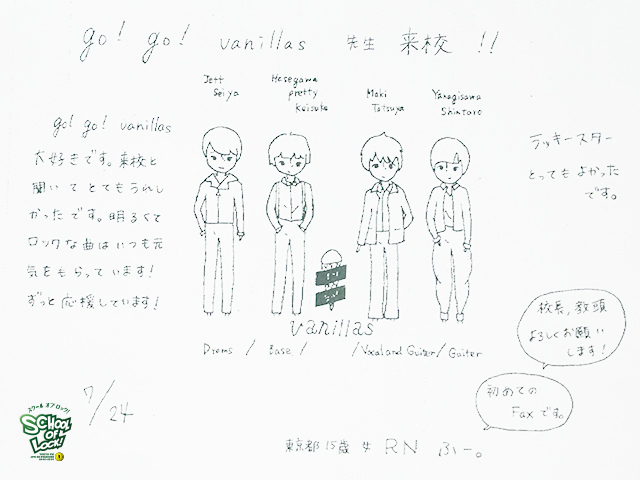 go! go! vanillas 先生 来校 !!
Jett
Seiya
Hasegawa
pretty
Keisuke
Maki
Tatsuya
Yanagisawa
Shintaro
go! go! vanillas
大好きです。来校と
聞いてとてもうれし
かったです。明るくて
ロックな曲はいつも元
気をもらっています!
ずっと応援しています!
ラッキースター
とってもよかった
です。
vanillas
Droms / Base / /Vocal and Guiter/ Guiter
校長,教頭
よろしくお願い
します!
初めての
Faxです。
7/24
スクール オブ ロック!
SCHOOL
OF
LOCK!
東京都 15歳 女 RN ふー。